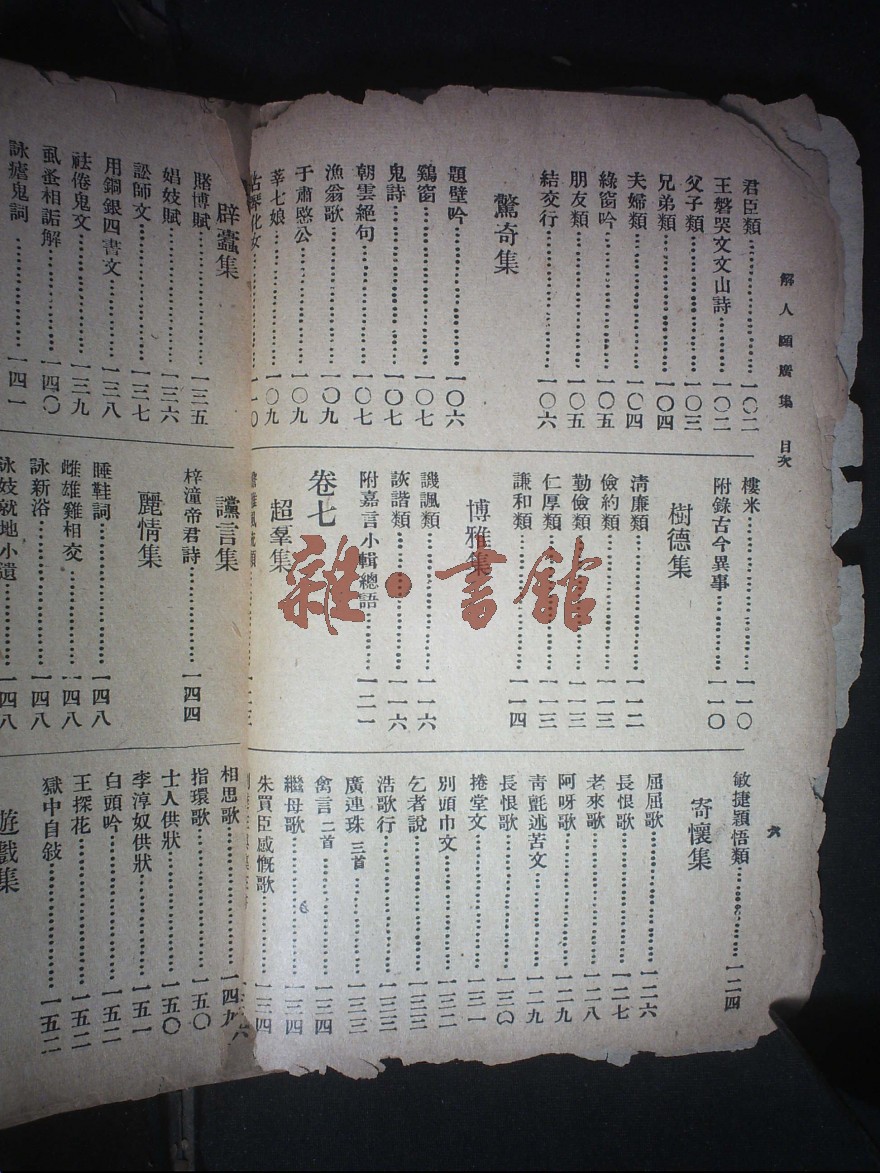 解人頤廣集 目次
六
君臣類 一〇二
王磐哭文文山詩 一〇二
父子類 一〇三
兄弟類 一〇四
夫婦類 一〇四
綠窗吟 一〇五
朋友類 一〇五
結交行 一〇六
驚奇集
題壁吟 一〇六
鷄窗 一〇七
鬼詩 一〇七
朝雲絕句 一〇七
漁翁歌 一〇九
于肅愍公 一〇九
莘七娘 一〇九
化女 一一〇
樓米 一一〇
附錄古今異事 一一〇
樹德集
淸廉類 一一二
儉約類 一一三
勤儉類 一一三
仁厚類 一一三
謙和類 一一四
博雅集
譏諷類 一一六
詼諧類 一一六
附嘉言小輯總語 一二一
卷七
超羣集
一二三
敏捷穎悟類 一二四
寄懷集
屈屈歌 一二六
長恨歌 一二七
老來歌 一二八
阿呀歌 一二九
靑氈述苦文 一二九
長恨歌 一三〇
捲堂文 一三一
別頭巾文 一三二
乞者說 一三三
浩歌行 一三三
廣連珠 三首 一三三
禽言 二首 一三四
繼母歌 一三四
朱買臣感慨歌 一三四
辟蠹集
賭博賦 一三五
娼妓賦 一三六
訟師文 一三七
用銅銀四書文 一三八
祛倦鬼文 一三九
虱蚤相詬解 一四〇
詠瘧鬼詞 一四一
讜言集
梓潼帝君詩 一四四
麗情集
睡鞋詞 一四八
雌雄雞相交 一四八
詠新浴 一四八
詠妓就地小遺 一四八
相思歌 一四九
指環歌 一五〇
士人供狀 一五〇
李淳奴供狀 一五一
白頭吟 一五二
王探花 一五二
獄中自敍 一五二
遊戲集
雜·書館